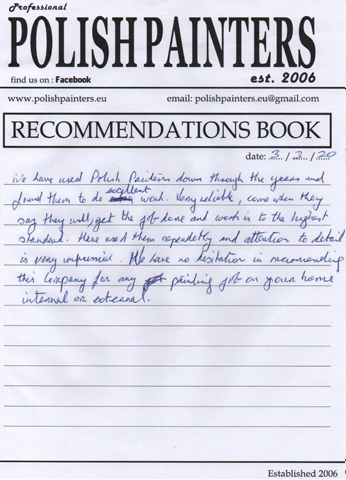 Professional
POLISH PAINTERS
find us on : Facebook
est. 2006
www.polishpainters.eu
email: polishpainters.eu@gmail.com
RECOMMENDATIONS BOOK
date: 3 / 3 / 20
We have used Polish Painters down through the years and
found them to do excellent work. Very reliable, come when they
say they will, get the job done and work is to the highest
standard. Have used them repeatedly and attention to detail
is very impressive. We have no hesitation in recommending
this company for any painting job on your home
internal or external.
Established 2006